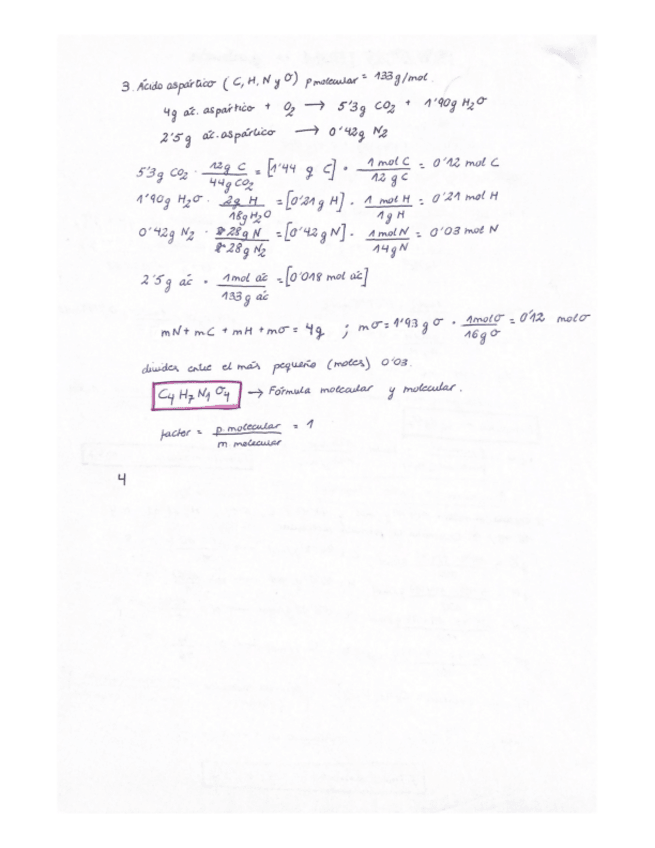 3. Ácido aspártico (C, H, N y O) p molecular = 133 g/mol.
4g ác. aspártico + O₂ → 5'3g CO₂ + 1'90g H₂O
2'5 g ác. aspártico → 0'42g N₂
5'3g CO₂ · 12g C / 44g CO₂ = [1'44 g C] · 1 mol C / 12 g C = 0'12 mol C
1'90g H₂O · 2g H / 18g H₂O = [0'21g H] · 1 mol H / 1g H = 0'21 mol H
0'42g N₂ · 28g N / 28g N₂ = [0'42g N] · 1 mol N / 14g N = 0'03 mol N
2'5g ác · 1mol ác / 133g ác = [0'018 mol ác]
mN + mC + mH + mO = 4g ; mO = 1'93g O · 1mol O / 16g O = 0'12 mol O
divides entre el más pequeño (moles) 0'03.
C₄ H₇ N₁ O₄ → Fórmula molecular y molecular.
factor = p. molecular / m molecular = 1
4